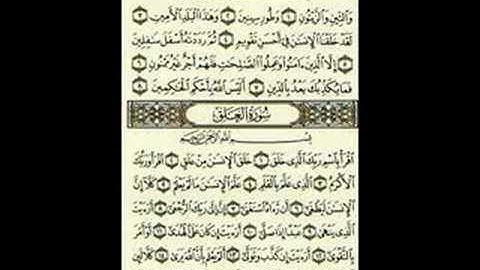 وَالتِّينِ وَالزَّيْتُونِ ١ وَطُورِ سِينِينَ ٢ وَهَٰذَا الْبَلَدِ الْأَمِينِ ٣
لَقَدْ خَلَقْنَا الْإِنسَانَ فِي أَحْسَنِ تَقْوِيمٍ ٤ ثُمَّ رَدَدْنَاهُ أَسْفَلَ سَافِلِينَ
٥ إِلَّا الَّذِينَ آمَنُوا وَعَمِلُوا الصَّالِحَاتِ فَلَهُمْ أَجْرٌ غَيْرُ مَمْنُونٍ ٦
فَمَا يُكَذِّبُكَ بَعْدُ بِالدِّينِ ٧ أَلَيْسَ اللَّهُ بِأَحْكَمِ الْحَاكِمِينَ ٨
سُورَةُ الْعَلَقِ
بِسْمِ اللَّهِ الرَّحْمَٰنِ الرَّحِيمِ
اقْرَأْ بِاسْمِ رَبِّكَ الَّذِي خَلَقَ ١ خَلَقَ الْإِنسَانَ مِنْ عَلَقٍ ٢ اقْرَأْ وَرَبُّكَ
الْأَكْرَمُ ٣ الَّذِي عَلَّمَ بِالْقَلَمِ ٤ عَلَّمَ الْإِنسَانَ مَا لَمْ يَعْلَمْ ٥ كَلَّا إِنَّ
الْإِنسَانَ لَيَطْغَىٰ ٦ أَن رَّآهُ اسْتَغْنَىٰ ٧ إِنَّ إِلَىٰ رَبِّكَ الرُّجْعَىٰ ٨ أَرَأَيْتَ
الَّذِي يَنْهَىٰ ٩ عَبْدًا إِذَا صَلَّىٰ ١٠ أَرَأَيْتَ إِن كَانَ عَلَى الْهُدَىٰ ١١ أَوْ أَمَرَ
بِالتَّقْوَىٰ ١٢ أَرَأَيْتَ إِن كَذَّبَ وَتَوَلَّىٰ ١٣ أَلَمْ يَعْلَم بِأَنَّ اللَّهَ يَرَىٰ ١٤ كَلَّا لَئِن